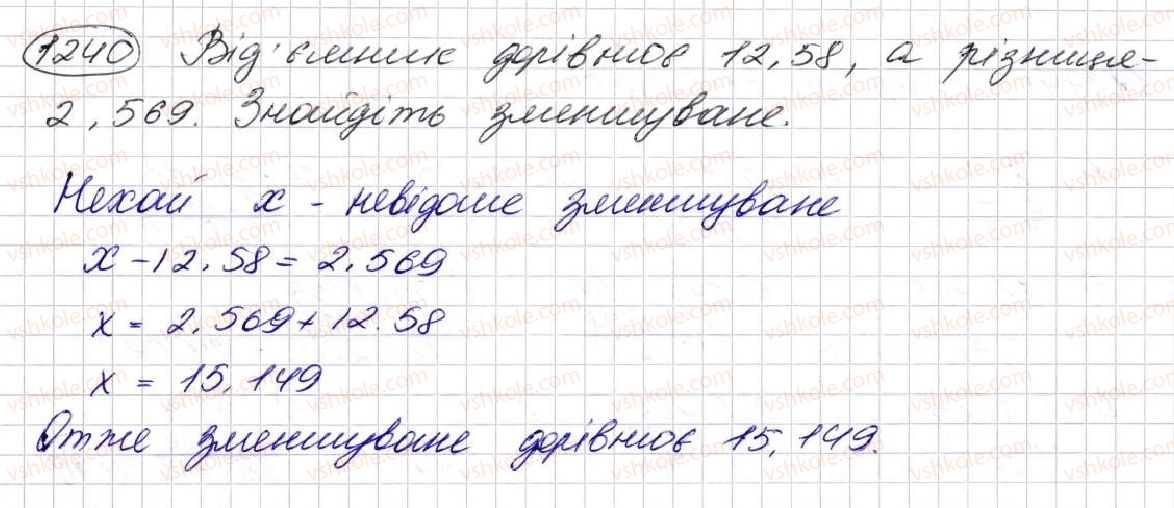 1240 Від'ємник дорівнює 12,58, а різниця-
2,569. Знайдіть зменшуване.
Нехай x - невідоме зменшуване
x - 12,58 = 2,569
x = 2,569 + 12.58
x = 15,149
Отже зменшуване дорівнює 15,149.